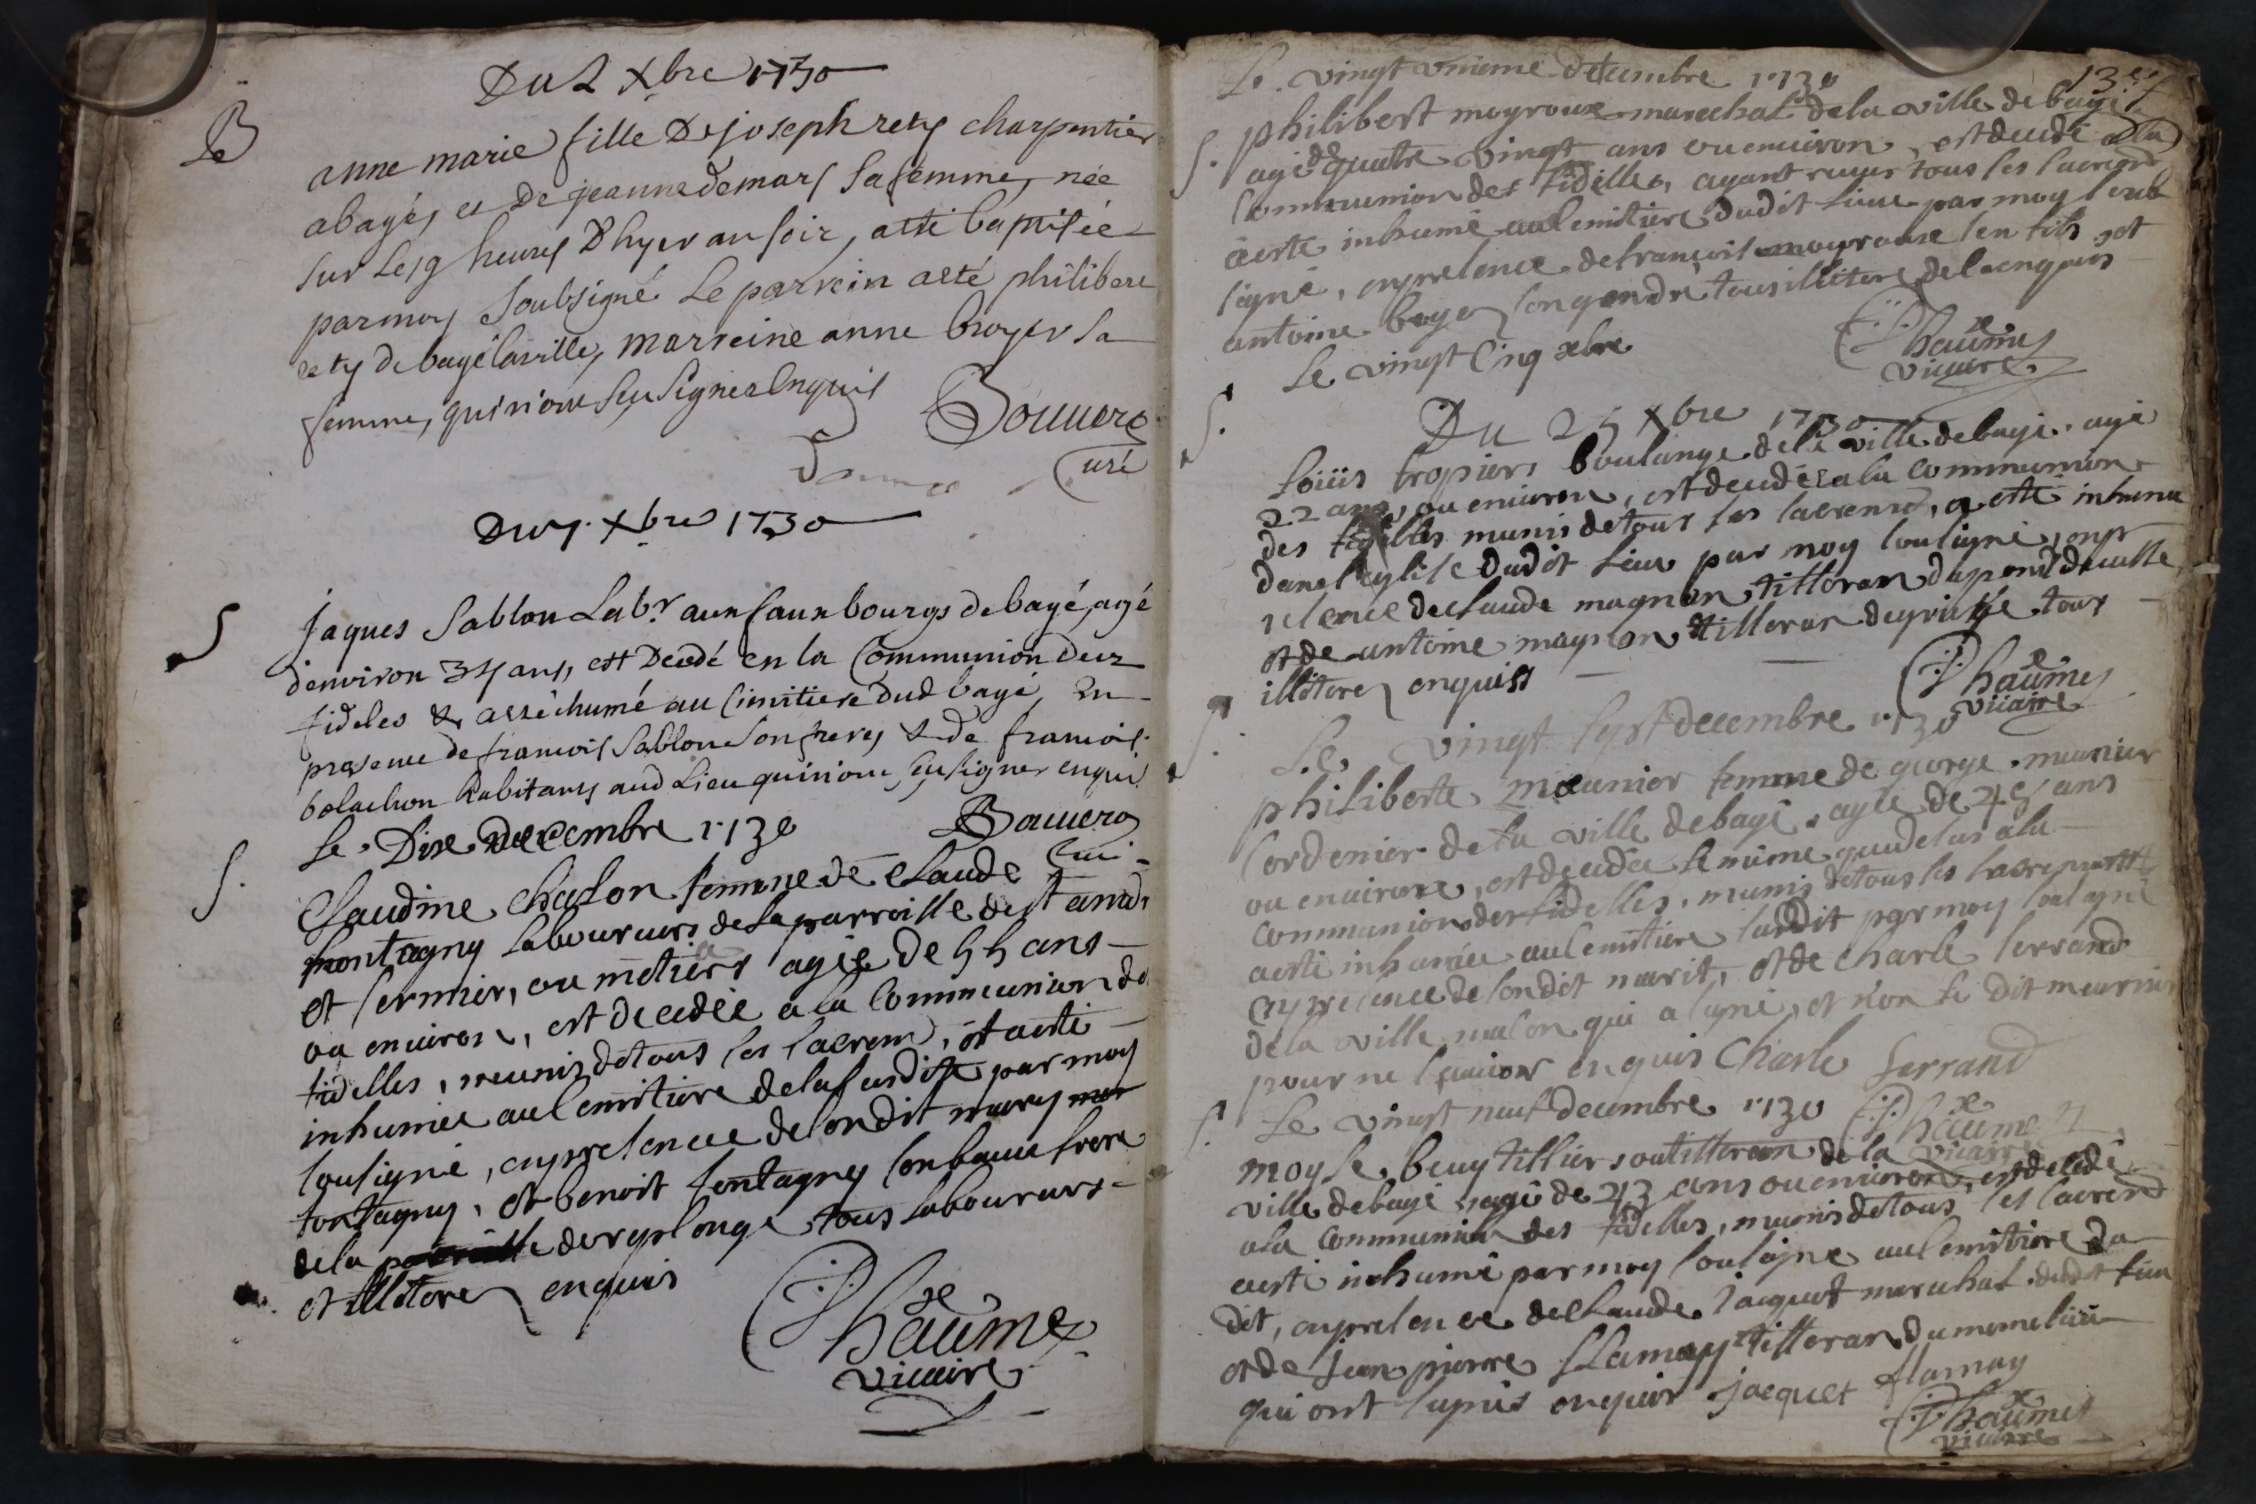 Du 2 Xbre 1730
B
anne marie fille De joseph rety charpentier
a bagé, et De jeanne demars sa femme, née
sur les 9 heures D'hyer au soir, a esté baptisée
par moy soubsigné Le parrein a esté philibert
rety de bagé la ville, marreine anne broyer sa
femme, qui n'ont sçu signer Enquis
Bouuero
Curé
Du 7. Xbre 1730
S
jaques Sablon Labr. aux faux bourgs de bagé, agé
d'environ 34 ans, est Decedé en la Communion Des
fideles & a esté inhumé au Cimitiere Dud bagé, En
presence de francois Sablon son frere, & De francois
bolachon habitants aud Lieu qui n'ont sçu signer enquis
Bouuero
Curé
Le Dixe Decembre 1730
S.
Claudine chalon femme de Claude
montagny laboureurs de la parroisse de st andr
et fermier, ou métiers agée de 55 ans
ou enuiron, est decedée a la Communion de
fidelles, munis de tous les sacrem, et a esté
inhumée au Cemitiere de la susditte par moy
sousigné, en presence de son dit mary
fontagny, et benoit fontagny son beaue frere
de la de replonge tous laboureurs
et illiterez enquis
P. haûme
vicaire
13e
Le vingt unieme decembre 1730
S. philibert moyroux marechal de la ville de bagé
agé de quatre vingt ans ou enuiron, est decedé a la
Communion des fidelles, ayant reçus tous les sacrem
a esté inhumé au Cemitiere dudit lieu par moy soub
signé, en presence de françois moyroux son fils, et
antoine boyer son gendre tous illiterez de ce enquis
P. haûme
vicaire
Le vingt Cinq xbre
S.
Du 25 Xbre 1730
loüis tropiers boulange de la ville de bagé. agé
22 ans, ou enuiron, est decedé a la Communion
des fidelles munis de tous les sacrem, a esté inhumé
dans l'eglise dudit lieu par moy sousigné, en p
resence de claude magnon tisseran
et de antoine magnon tisseran tous
illiterez enquiss
P. haûme
vicaire
S.
Le vingt sept decembre 1730
philiberte meunier femme de george meunier
Cordonier de la ville de bagé, agée de 45 ans
ou enuiron, est decedée le même a la
Communion des fidelles, munis de tous les sacrements
a esté inhumée au Cemitiere susdit par moy sousigné
en presence de son dit marit, et de Charle ferrand
de la ville maçon qui a signé, et non le dit meunier
pour ne sçauoir enquis Charle ferrand
P. haûme
vicaire
S. Le vingt neuf decembre 1730
moyse beuytillier tisseran de la
ville de bagé, agé de 43 ans ou enuiron, est decedé
a la Communion des fidelles, munis de tous les sacrem
a esté inhumé par moy sousigné au Cemitiere du
dit, en presence de Claude jacquet marechal dudit lieu
et de jean pierre flamay tisseran du meme lieu
qui ont signés enquis jacquet flamay
P. haûme
vicaire